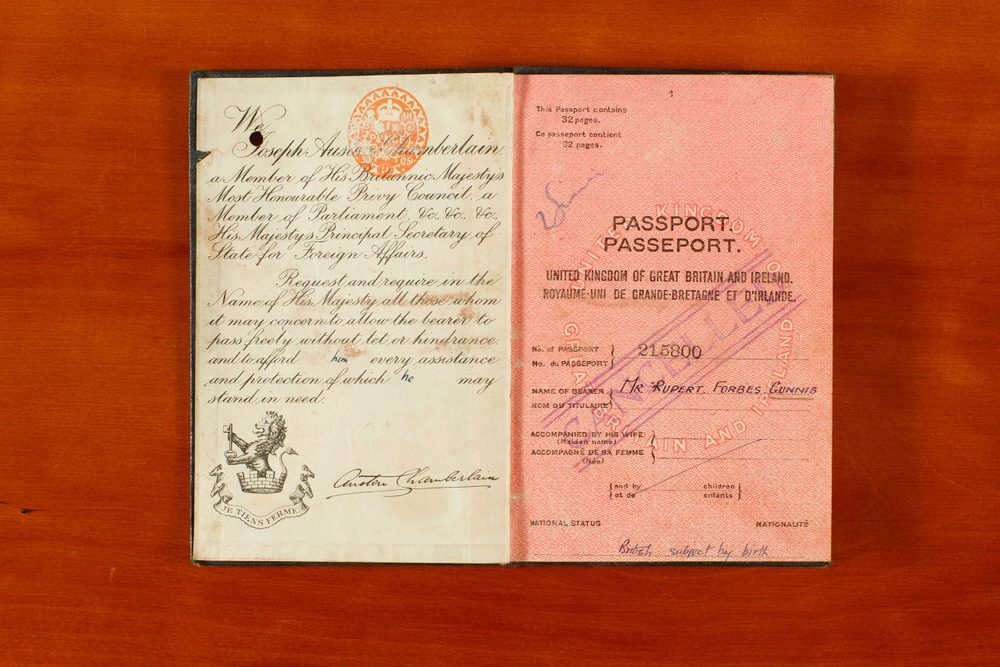 We,
Joseph Austen Chamberlain,
a Member of His Britannic Majesty's
Most Honourable Privy Council, a
Member of Parliament, &c. &c. &c.
His Majesty's Principal Secretary of
State for Foreign Affairs,
Request and require in the
Name of His Majesty all those whom
it may concern to allow the bearer to
pass freely without let or hindrance
and to afford him every assistance
and protection of which he may
stand in need.
JE TIENS FERME
Austen Chamberlain
1
This Passport contains
32 pages.
Ce passeport contient
32 pages.
PASSPORT.
PASSEPORT.
UNITED KINGDOM OF GREAT BRITAIN AND IRELAND.
ROYAUME-UNI DE GRANDE-BRETAGNE ET D'IRLANDE.
UNITED KINGDOM OF GREAT BRITAIN AND IRELAND
CANCELLED
No. of PASSPORT
No. du PASSEPORT
215800
NAME OF BEARER
NOM DU TITULAIRE
MR RUPERT FORBES GUNNIS
ACCOMPANIED BY HIS WIFE
(Maiden name)
ACCOMPAGNÉ DE SA FEMME
(Née)
and by children
et de enfants
NATIONAL STATUS NATIONALITÉ
British subject by birth